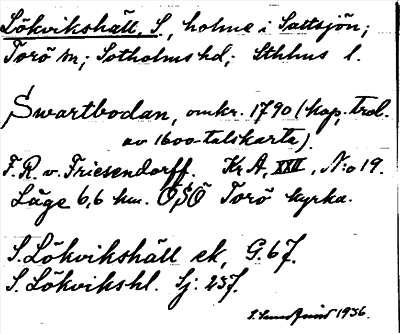 Lökvikshäll, S., holme i Saltsjön;
Torö sn; Sotholms hd; Sthlms l.
Swartbodan, omkr. 1790 (kop. trol.
av 1600-talskarta).
F. R. v. Friesendorff. Kr A, XXII, N:o 19.
Läge 6,6 km. OSO Torö kyrka.
S. Lökvikshäll ek, G. 67.
S. Lökvikshl. Sj: 237.
1936.